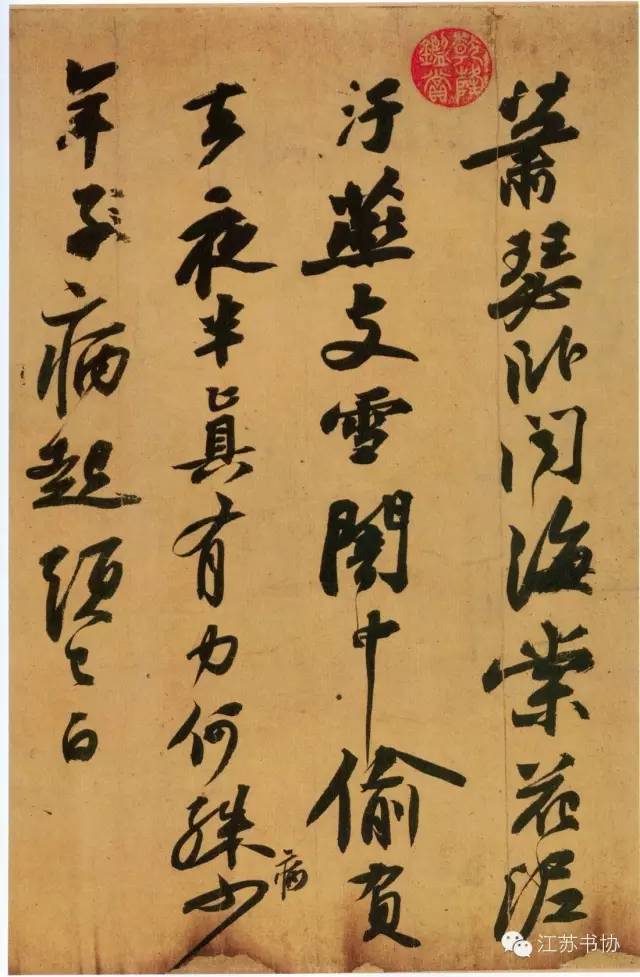 乾隆鑑賞
蕭瑟卧聞海棠花泥
汙燕支雪闇中偷負
去夜半真有力何殊病少
年子病起頭已白
江苏书协